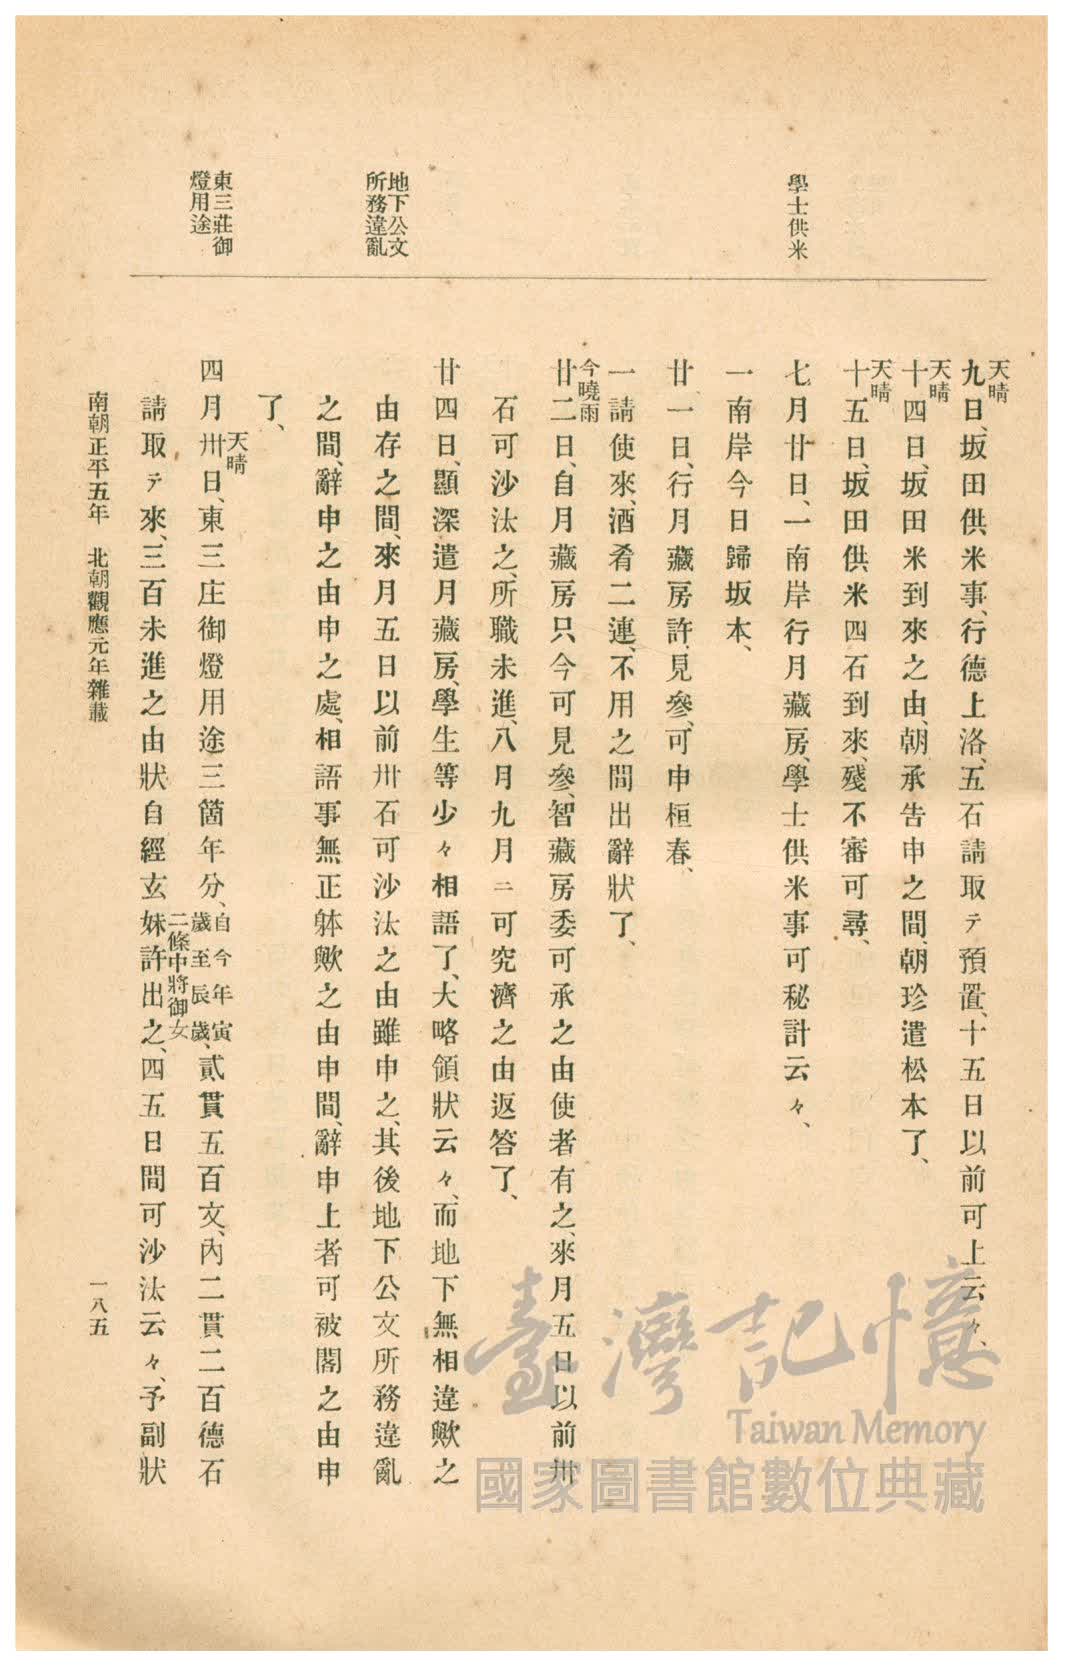 學士供米
地下公文
所務違亂
東三莊御
燈用途
天晴
九日、坂田供米事、行德上洛、五石請取テ預置、十五日以前可上云々、
天晴
十四日、坂田米到來之由、朝承告申之間、朝珍遣松本了、
天晴
十五日、坂田供米四石到來、殘不審可尋、
七月廿日、一南岸行月藏房、學士供米事可秘計云々、
一南岸今日歸坂本、
廿一日、行月藏房許、見參、可申桓春、
一請使來、酒肴二連、不用之間出辭狀了、
今曉雨
廿二日、自月藏房只今可見參、智藏房委可承之由使者有之、來月五日以前卅
石可沙汰之、所職未進、八月九月ニ可究濟之由返答了、
廿四日、顯深遣月藏房、學生等少々相語了、大略領狀云々、而地下無相違歟之
由存之間、來月五日以前卅石可沙汰之由雖申之、其後地下公文所務違亂
之間、辭申之由申之處、相語事無正躰歟之由申間、辭申上者可被閣之由申
了、
天晴
四月卅日、東三庄御燈用途三箇年分、自今年寅歲至辰歲、貳貫五百文、內二貫二百德石
二條中將御女
請取テ來、三百未進之由狀自經玄妹許出之、四五日間可沙汰云々、予副狀
南朝正平五年 北朝觀應元年雜載
一八五
臺灣記憶
Taiwan Memory
國家圖書館數位典藏